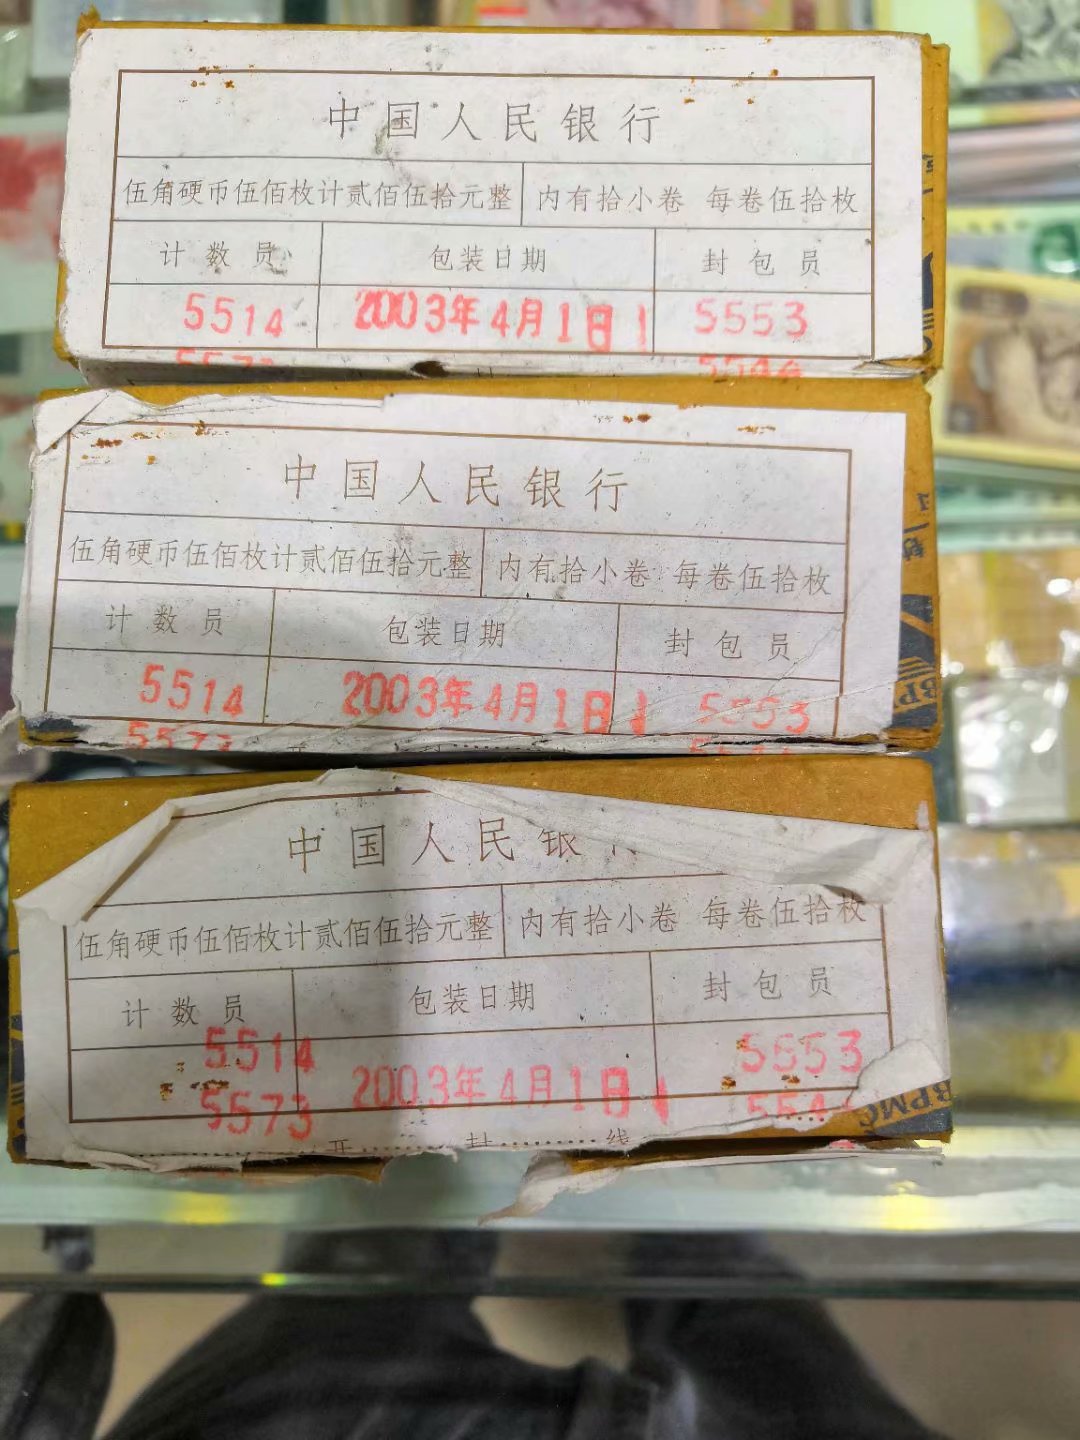 中国人民银行
伍角硬币伍佰枚计贰佰伍拾元整 内有拾小卷 每卷伍拾枚
计数员 包装日期 封包员
5514 2003年4月1日 5553
5573 5544
中国人民银行
伍角硬币伍佰枚计贰佰伍拾元整 内有拾小卷 每卷伍拾枚
计数员 包装日期 封包员
5514 2003年4月1日 5553
5573
中国人民银
伍角硬币伍佰枚计贰佰伍拾元整 内有拾小卷 每卷伍拾枚
计数员 包装日期 封包员
5514 2003年4月1日 5553
5573 5544
开 封 线
BPMC